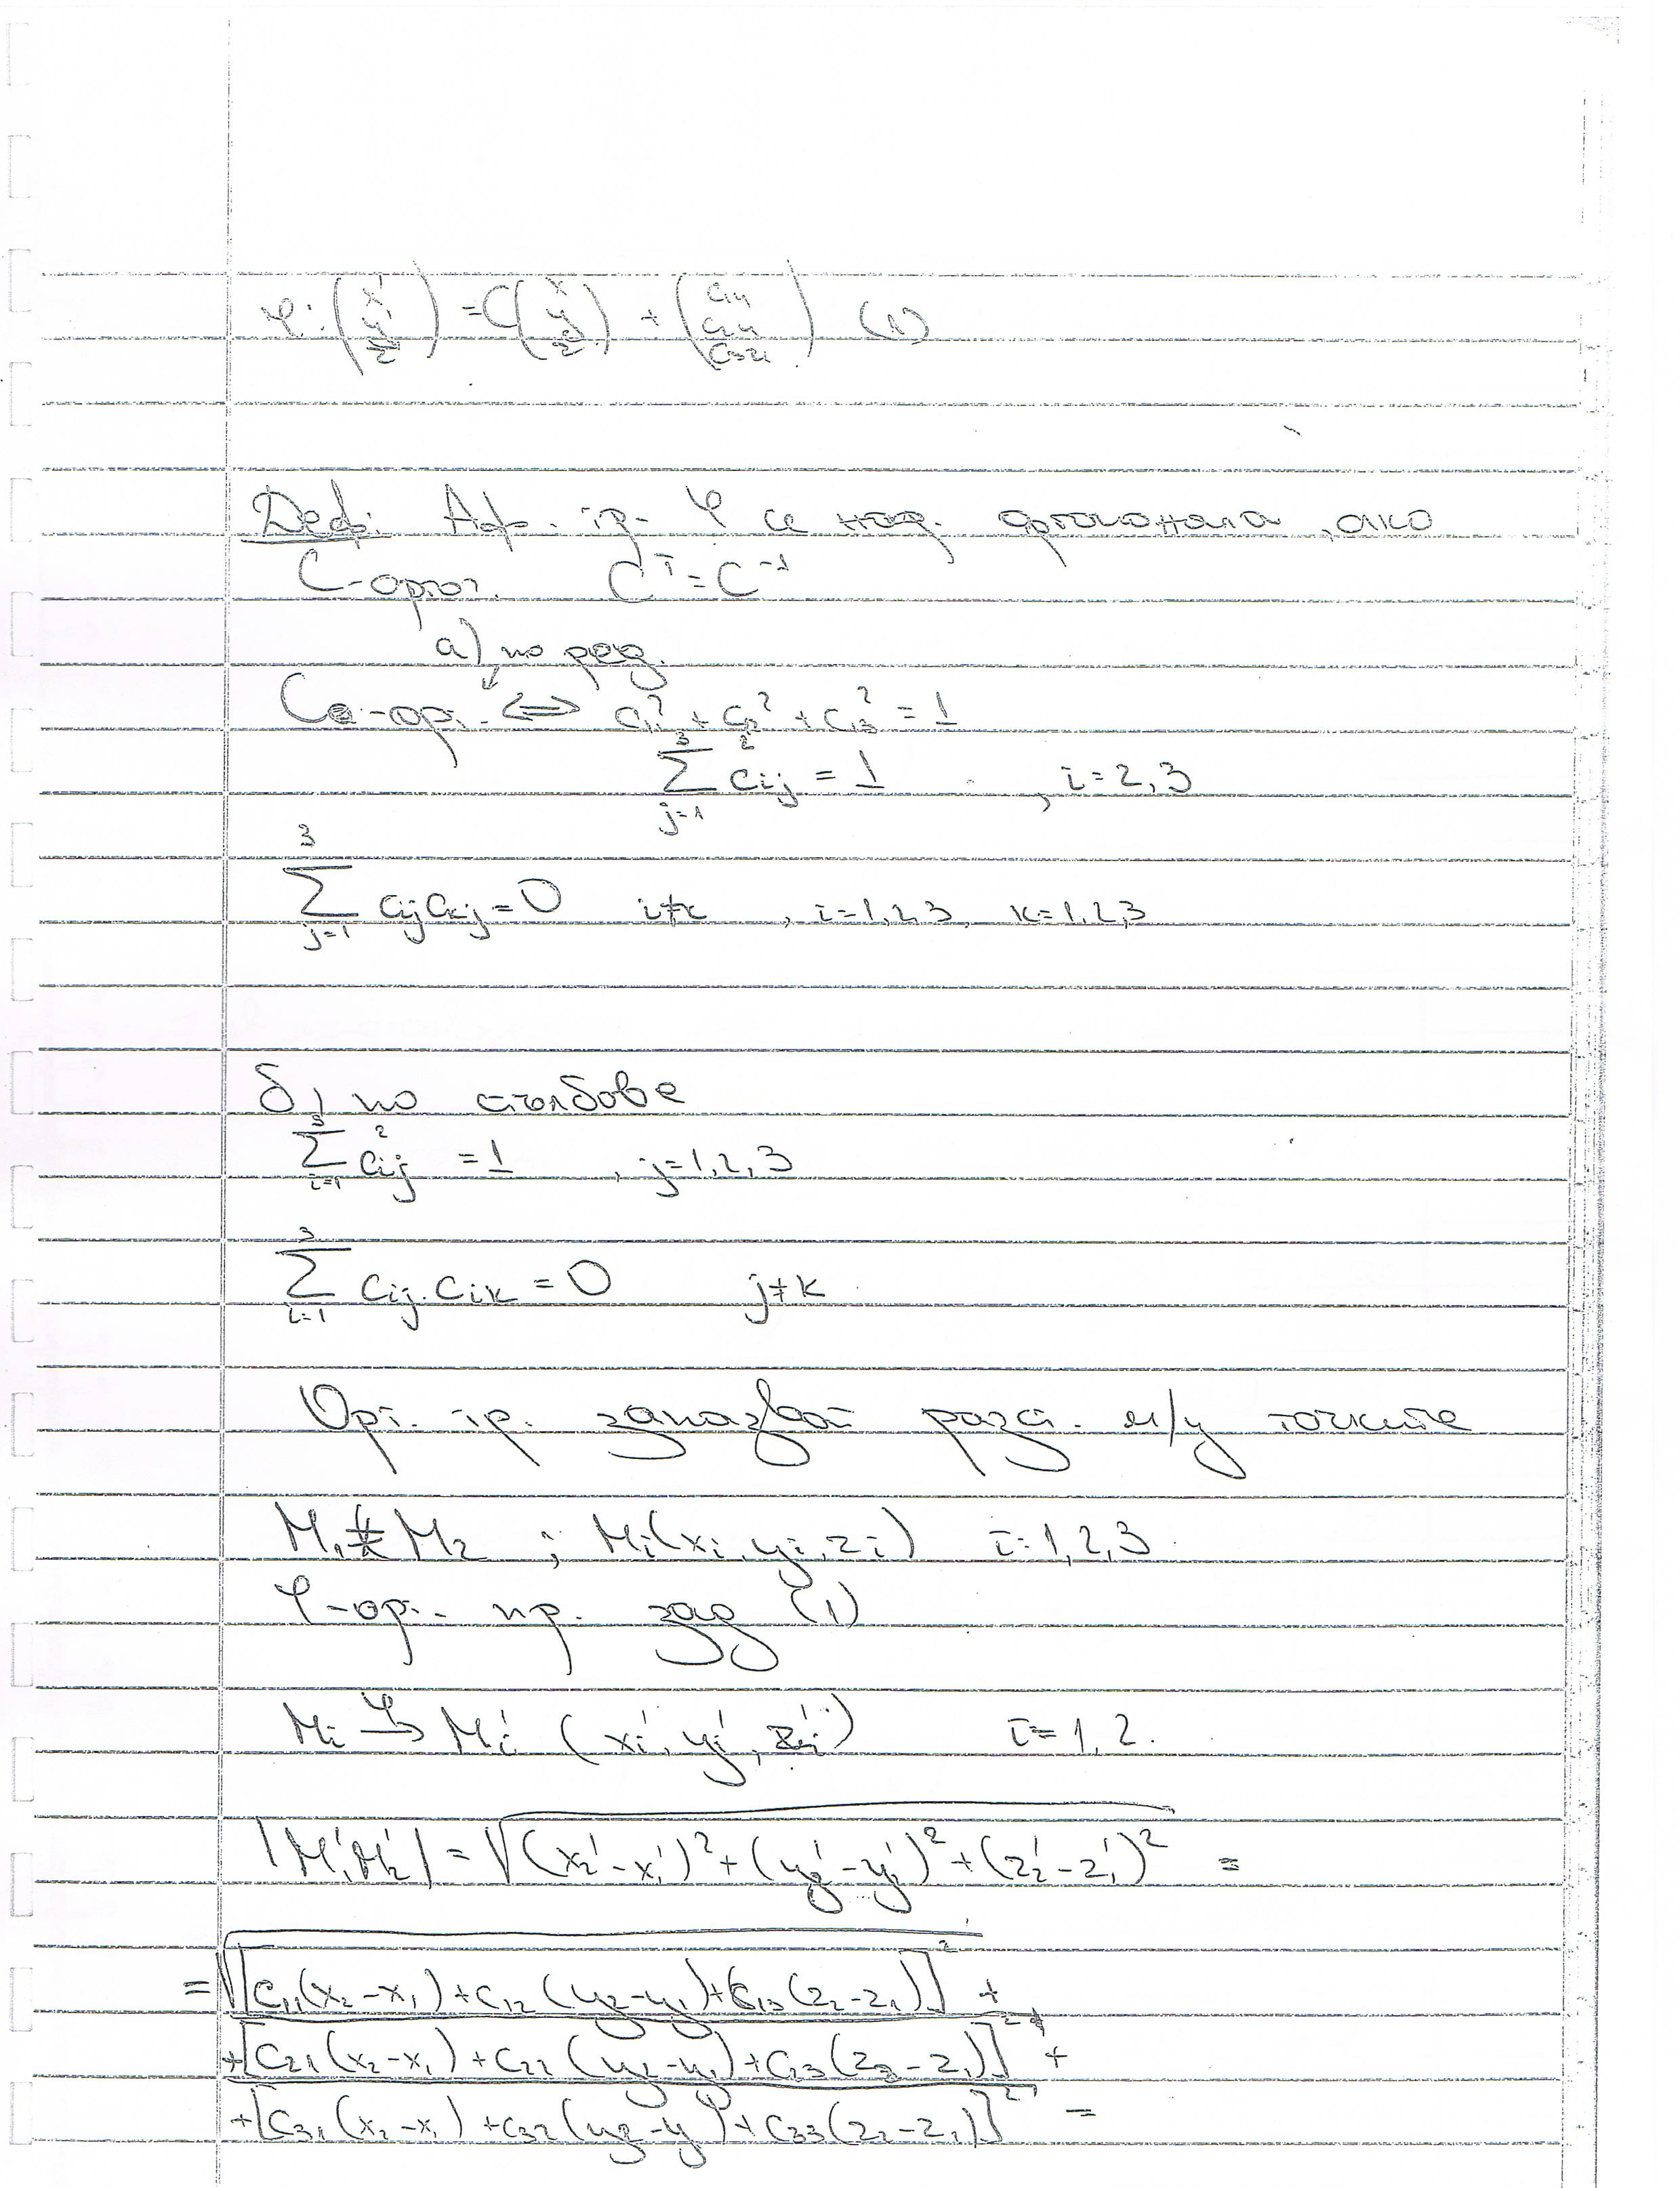 φ: (x' y' z') = C(x y z) + (c14 c24 c34) (1)
Деф: Аф. тр. φ се нар. ортогонала, ако
C-ортог. C^T = C^-1
а) по ред.
C-орт. ⇔ c11² + c12² + c13² = 1
∑_{j=1}^{3} cij² = 1 , i=2,3
∑_{j=1}^{3} cij ckj = 0 i≠k , i=1,2,3, k=1,2,3
б) по стълбове
∑_{i=1}^{3} cij² = 1 , j=1,2,3
∑_{i=1}^{3} cij.cik = 0 j≠k
Орт. тр. запазват разст. м/у точките
M1≠M2 ; Mi(xi, yi, zi) i=1,2,3
φ-орт. пр. зад (1)
Mi →^φ Mi' (xi', yi', zi') i=1,2.
|M1'M2'| = √(x2'-x1')² + (y2'-y1')² + (z2'-z1')² =
= √[c11(x2-x1)+c12(y2-y1)+c13(z2-z1)]² +
+[c21(x2-x1)+c22(y2-y1)+c23(z2-z1)]² +
+[c31(x2-x1)+c32(y2-y1)+c33(z2-z1)]² =